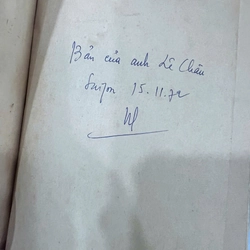 Bản của anh Lê Châu
Saigon 15.11.72